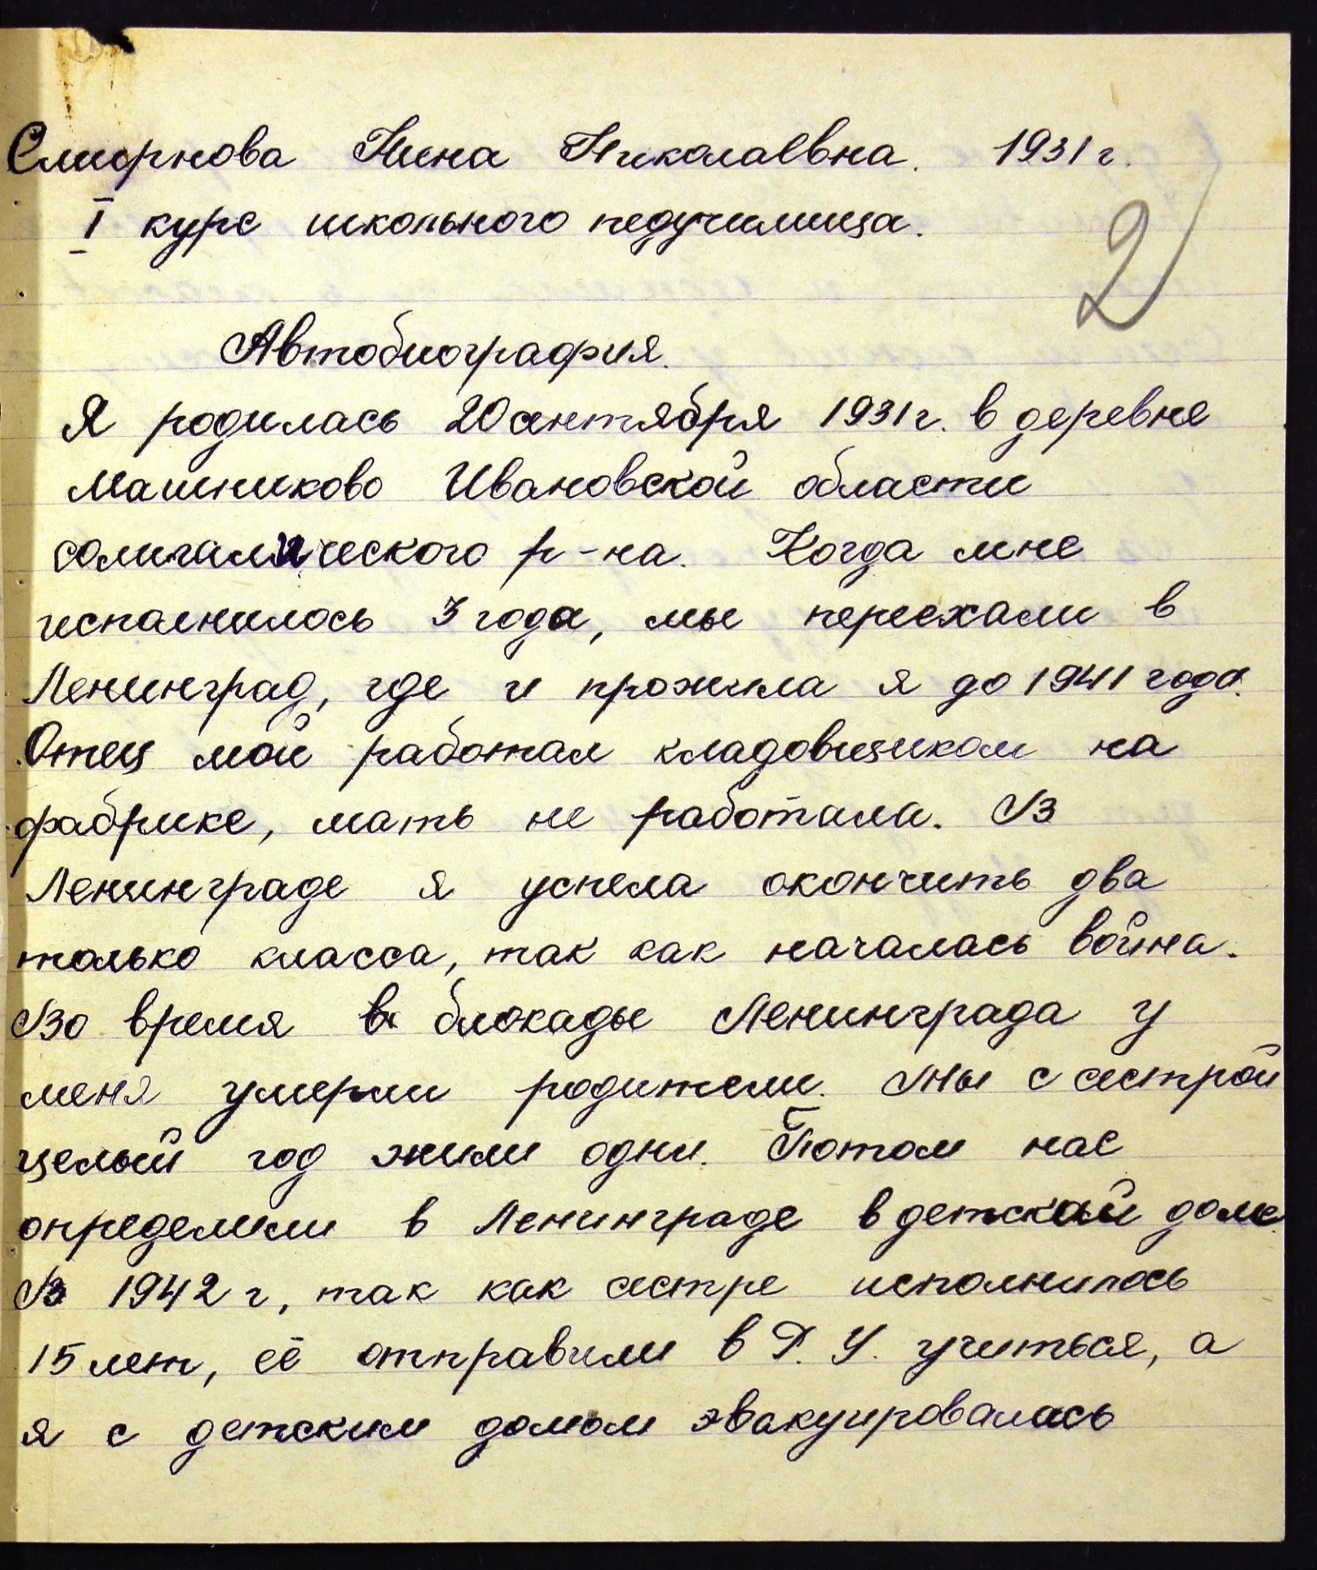 Смирнова Нина Николаевна. 1931 г.
I курс школьного педучилища.
2
Автобиография.
Я родилась 20 сентября 1931 г. в деревне
Машниково Ивановской области
солигаличческого р-на. Когда мне
исполнилось 3 года, мы переехали в
Ленинград, где и прожила я до 1941 года.
Отец мой работал кладовщиком на
фабрике, мать не работала. В
Ленинграде я успела окончить два
только класса, так как началась война.
Во время в блокады Ленинграда у
меня умерли родители. Мы с сестрой
целый год жили одни. Потом нас
определили в Ленинграде в детский доме.
В 1942 г, так как сестре исполнилось
15 лет, её отправили в Р. У. учиться, а
я с детским домом эвакуировалась